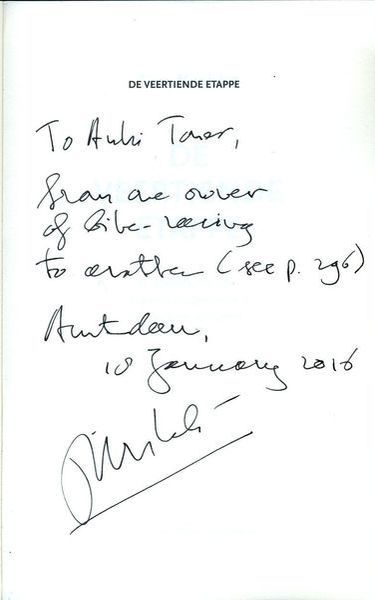 DE VEERTIENDE ETAPPE
To Anki Toner,
from one owner
of bike-racing
to another (see p. 296)
Amsterdam,
10 January 2016